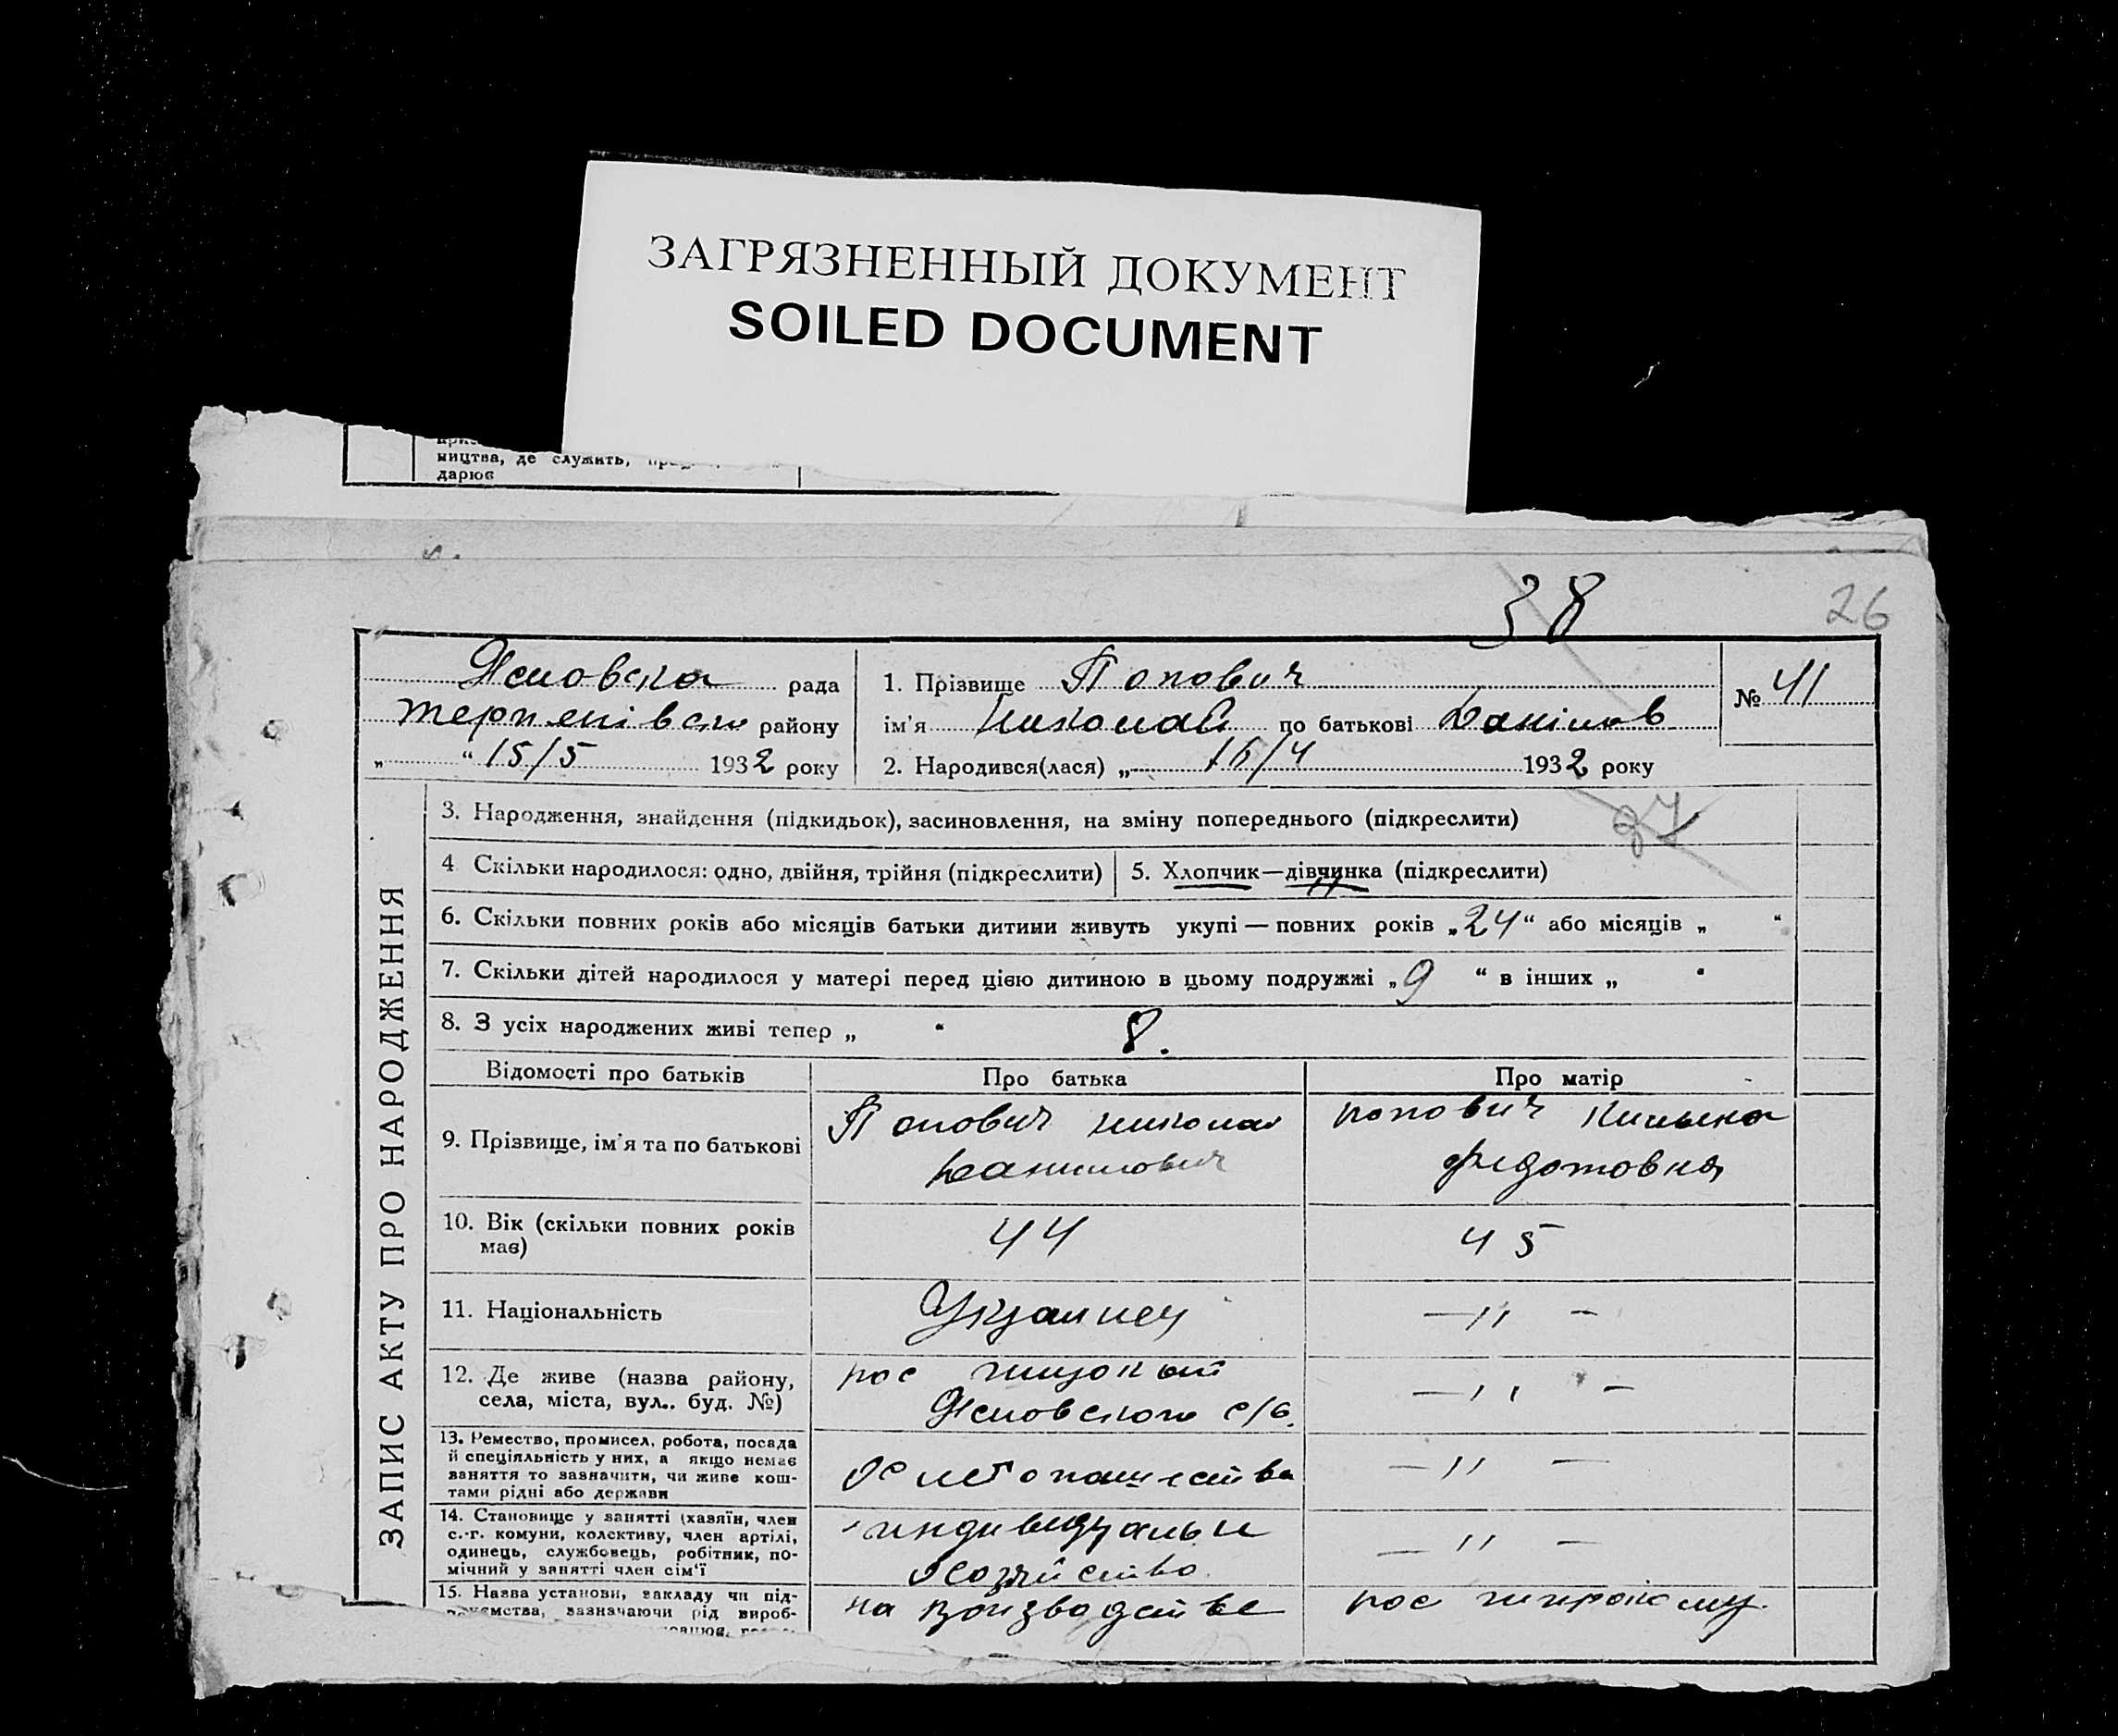 ЗАГРЯЗНЕННЫЙ ДОКУМЕНТ
SOILED DOCUMENT
ництва, де служить,
дарює
38
26
рада
району
„ “ 15/5 1932 року
1. Прізвище Попович
ім'я Николай по батькові Данілов
2. Народився(лася) „ 16/4 1932 року
№ 41
ЗАПИС АКТУ ПРО НАРОДЖЕННЯ
3. Народження, знайдення (підкидьок), засиновлення, на зміну попереднього (підкреслити)
37
4 Скільки народилося: одно, двійня, трійня (підкреслити)
5. Хлопчик—дівчинка (підкреслити)
6. Скільки повних років або місяців батьки дитини живуть укупі — повних років „24“ або місяців „ “
7. Скільки дітей народилося у матері перед цією дитиною в цьому подружжі „9 “ в інших „ “
8. З усіх народжених живі тепер „ “ 8.
Відомості про батьків
Про батька
Про матір
9. Прізвище, ім'я та по батькові
Попович Николай
Данилович
Попович
Федотовна
10. Вік (скільки повних років
має)
44
45
11. Національність
Украинец
—〃—
12. Де живе (назва району,
села, міста, вул.. буд. №)
пос
с/б.
—〃—
13. Ремество, промисел, робота, посада
й спеціяльність у них, а якщо немає
заняття то зазначити, чи живе кош-
тами рідні або держави
—〃—
14. Становище у занятті (хазяїн, член
с.-г. комуни, колективу, член артілі,
одинець, службовець, робітник, по-
мічний у занятті член сім'ї
хозяйство
—〃—
15. Назва установи, закладу чи під-
зазначаючи рід вироб-
на
пос